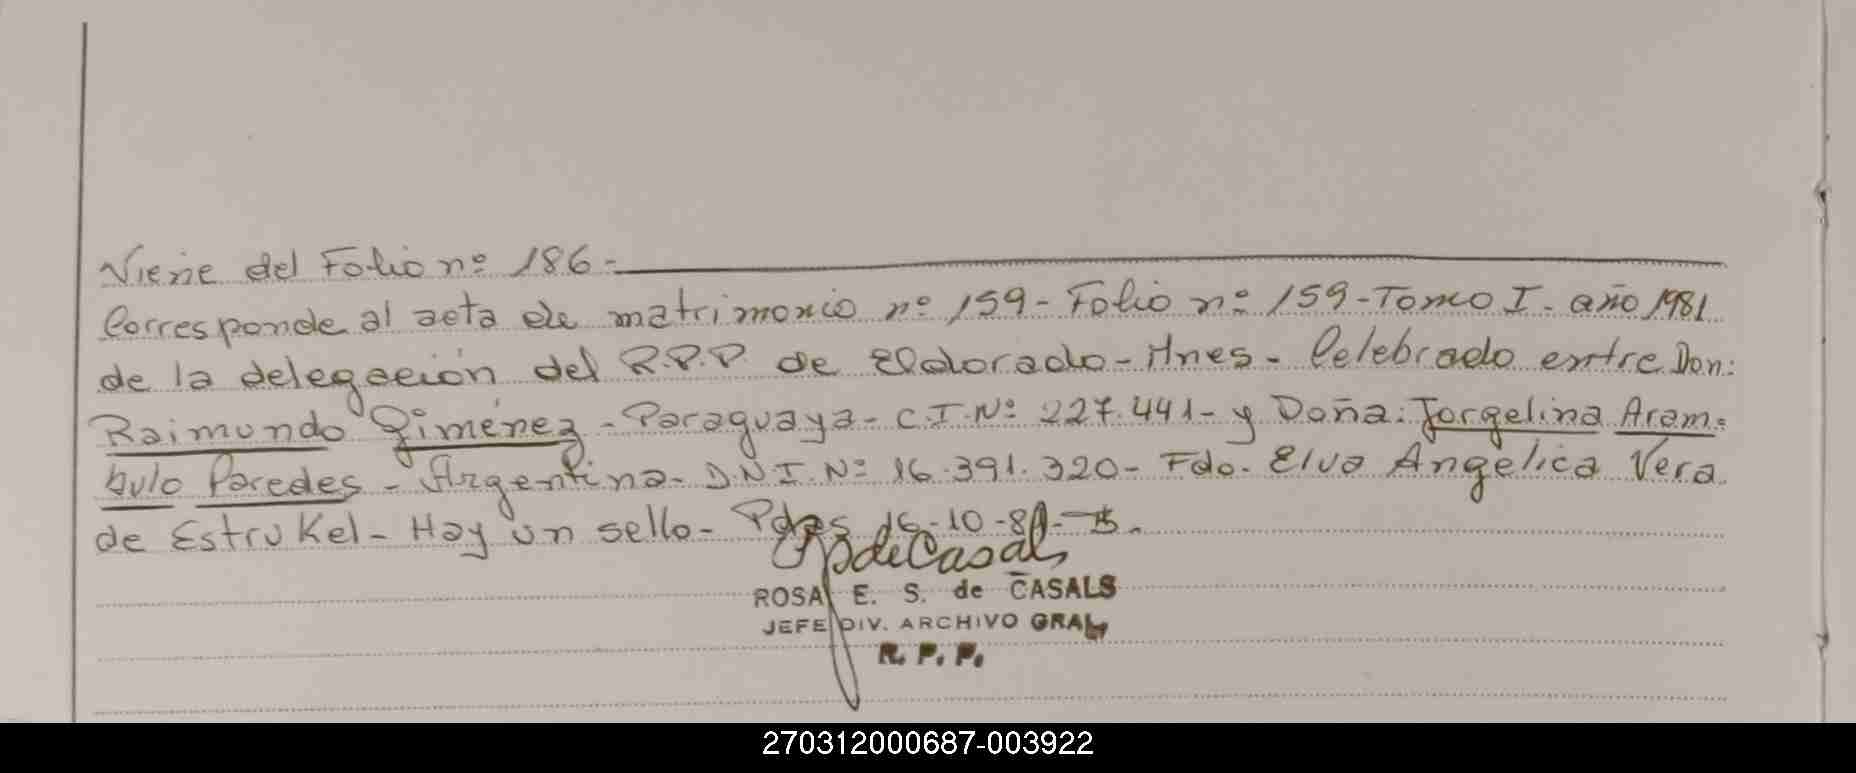 Viene del Folio nº 186-
Corresponde al acta de matrimonio nº 159- Folio nº 159- Tomo I- año 1981
de la delegación del R.P.P. de Eldorado- Mnes- Celebrado entre Don:
Raimundo Giménez- Paraguaya- C.I.Nº 227.441- y Doña: Jorgelina Aram-
bulo Paredes- Argentina- D.N.I. Nº 16.391.320- Fdo. Elva Angélica Vera
de Estrukel- Hay un sello- Pdas 16-10-81-
deCasals
ROSA E. S. de CASALS
JEFE DIV. ARCHIVO GRAL
R. P. P.
270312000687-003922